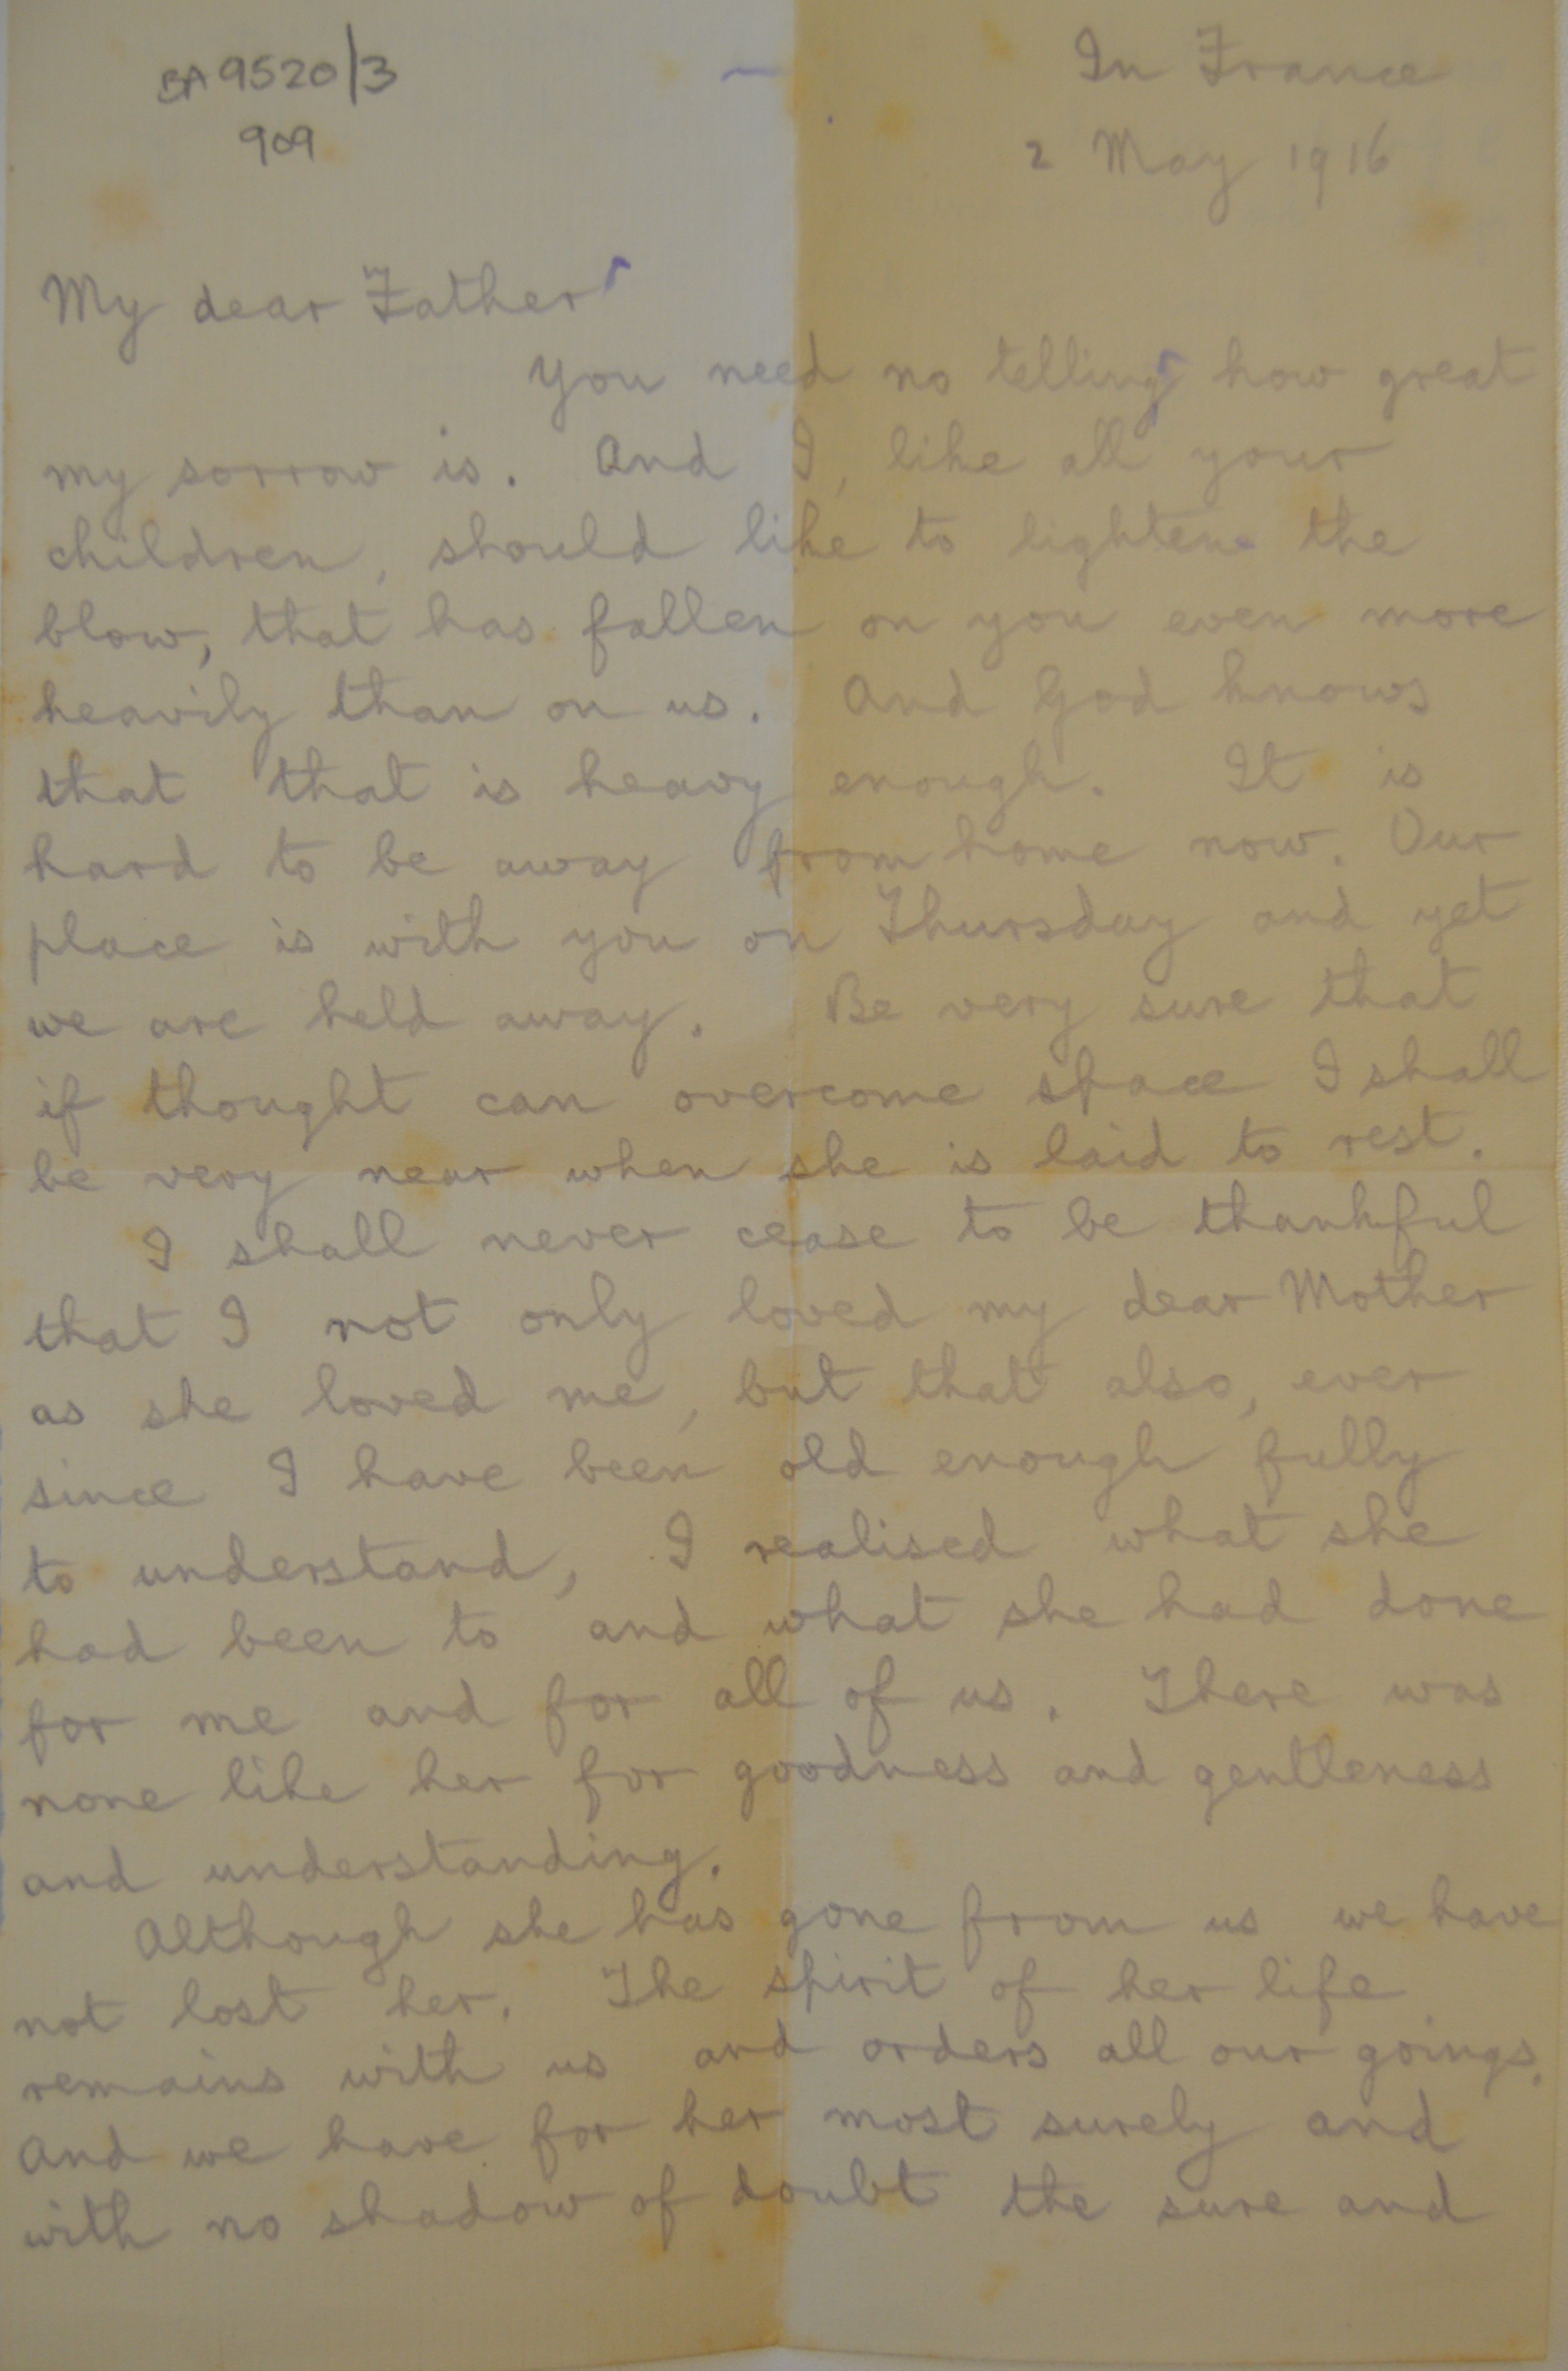 BA 9520/3
909
In France
2 May 1916
My dear Father
You need no telling how great
my sorrow is. And I, like all your
children, should like to lighten the
blow, that has fallen on you even more
heavily than on us. And God knows
that that is heavy enough. It is
hard to be away from home now. Our
place is with you on Thursday and yet
we are held away. Be very sure that
if thought can overcome space I shall
be very near when she is laid to rest.
I shall never cease to be thankful
that I not only loved my dear Mother
as she loved me, but that also, ever
since I have been old enough fully
to understand, I realised what she
had been to and what she had done
for me and for all of us. There was
none like her for goodness and gentleness
and understanding.
Although she has gone from us we have
not lost her. The spirit of her life
remains with us and orders all our goings.
And we have for her most surely and
with no shadow of doubt the sure and